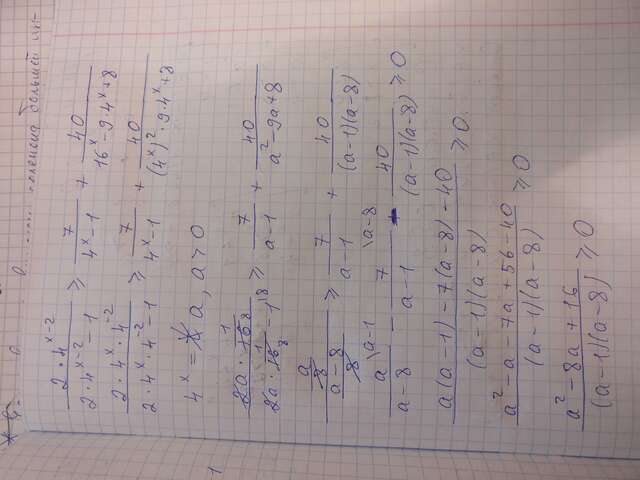 2·4^(x-2) / (2·4^(x-2) - 1) ≥ 7 / (4^x - 1) + 40 / (16^x - 9·4^x + 8)
2·4^x·4^(-2) / (2·4^x·4^(-2) - 1) ≥ 7 / (4^x - 1) + 40 / ((4^x)^2 · 9·4^x + 8)
4^x = a, a > 0
2a·1/16 8 / (2a·1/16 8 - 1\8) ≥ 7 / (a-1) + 40 / (a^2 - 9a + 8)
a/8 / ((a-8)/8) ≥ 7 / (a-1) + 40 / ((a-1)(a-8))
a\a-1 / (a-8) - 7\a-8 / (a-1) - 40 / ((a-1)(a-8)) ≥ 0
(a(a-1) - 7(a-8) - 40) / ((a-1)(a-8)) ≥ 0
(a^2 - a - 7a + 56 - 40) / ((a-1)(a-8)) ≥ 0
(a^2 - 8a + 16) / ((a-1)(a-8)) ≥ 0
1